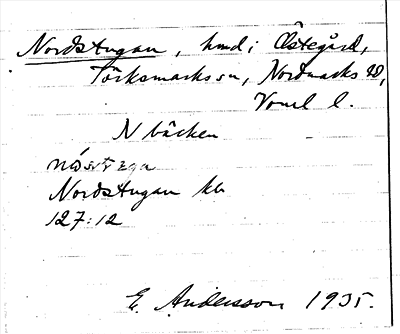 Nordstugan, hmd i Östegård,
Töcksmarks sn, Nordmarks hd,
Vrml l.
N bäcken
Nordstugan kb
127:12
E. Andersson 1935.